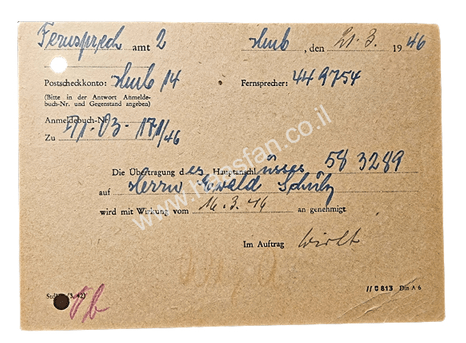 Fernsprech amt 2 Hmb, den 21.3. 1946
Postscheckkonto: Hmb 14 Fernsprecher: 449754
(Bitte in der Antwort Anmelde-
buch-Nr. und Gegenstand angeben)
Anmeldebuch-Nr.
Zu /46
Die Übertragung des Hauptanschlusses 583289
auf Herrn Ewald Schulz
wird mit Wirkung vom 16.3.46 an genehmigt.
Im Auftrag
www.herosfan.co.il
// 0813 Din A 6